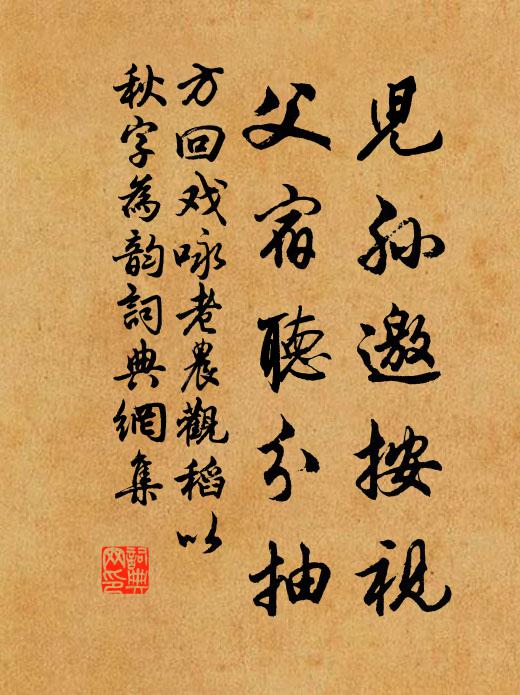 児孫邀按視
父宿聽分抽
方回戏咏老農觀稻以
秋字為韵詞典網集
詞典网印